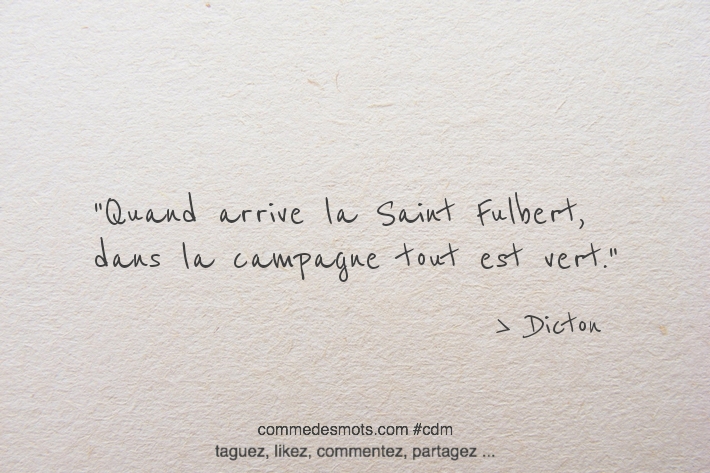 "Quand arrive la Saint Fulbert,
dans la campagne tout est vert."
> Dicton
commedesmots.com #cdm
taguez, likez, commentez, partagez ...